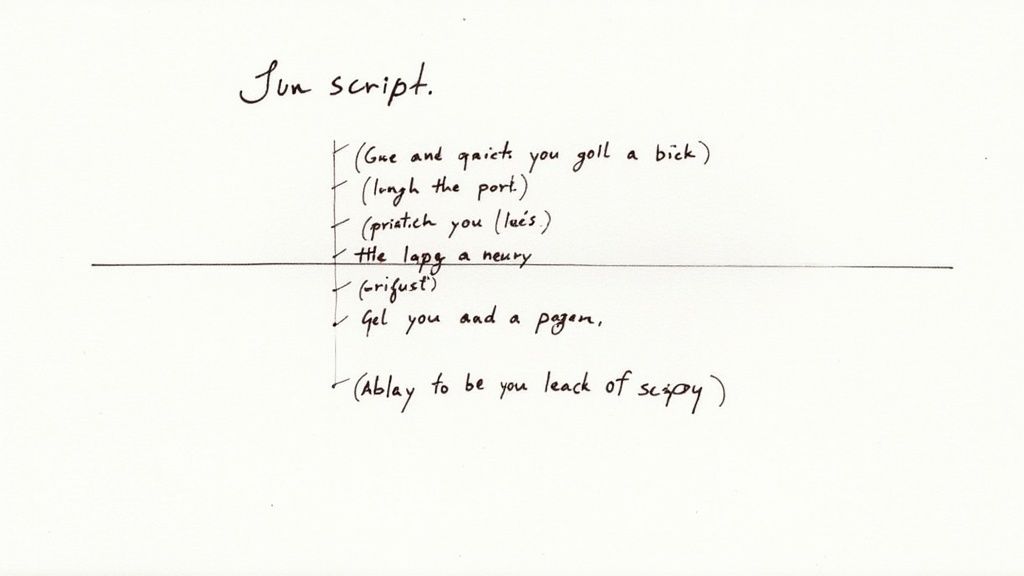 Jun script.
(Gue and quick you goll a bick)
(lungh the port.)
you
the lapg a neury
Gel you and a pagan,
(Ablay to be you leack of scipy)